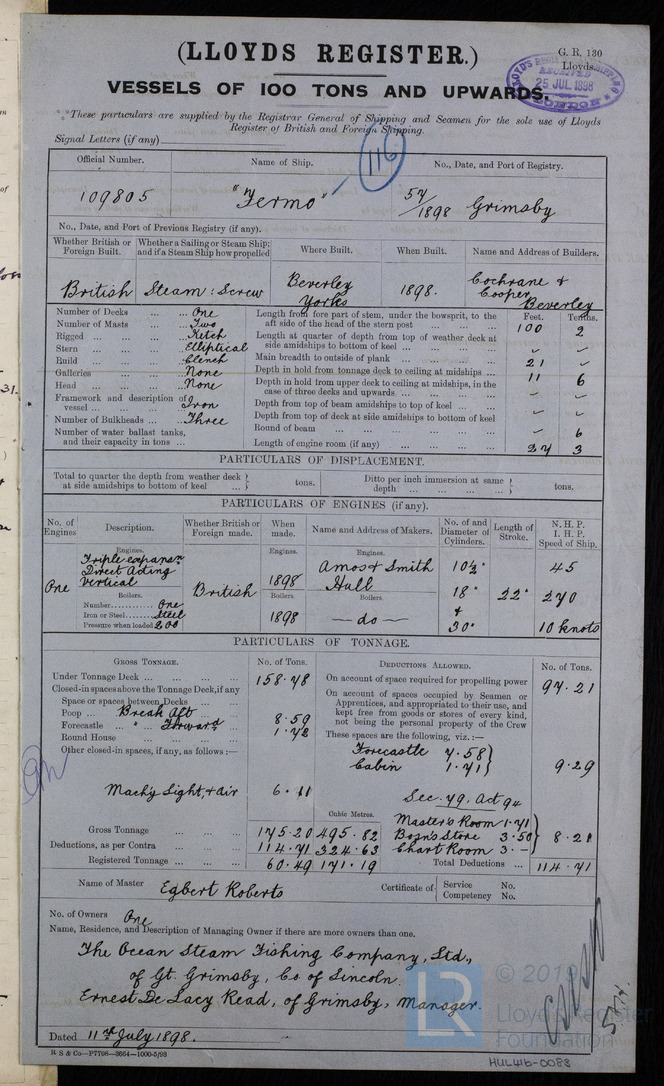 (LLOYDS REGISTER.)
G. R. 130
Lloyds.
25 JUL 1898
VESSELS OF 100 TONS AND UPWARDS.
These particulars are supplied by the Registrar General of Shipping and Seamen for the sole use of Lloyds
Register of British and Foreign Shipping.
Signal Letters (if any)
116
Official Number. Name of Ship. No., Date, and Port of Registry.
109805 "Fermo" 57/1898 Grimsby
No., Date, and Port of Previous Registry (if any).
Whether British or Foreign Built. Whether a Sailing or Steam Ship; and if a Steam Ship how propelled Where Built. When Built. Name and Address of Builders.
British Steam: Screw Beverley Yorks 1898. Cochrane & Cooper Beverley
Number of Decks ... One
Number of Masts ... Two
Rigged ... Ketch
Stern ... Elliptical
Build ... Clench
Galleries ... None
Head ... None
Framework and description of vessel ... Iron
Number of Bulkheads ... Three
Number of water ballast tanks, and their capacity in tons ...
Feet. Tenths.
Length from fore part of stem, under the bowsprit, to the aft side of the head of the stern post 100 2
Length at quarter of depth from top of weather deck at side amidships to bottom of keel
Main breadth to outside of plank 21
Depth in hold from tonnage deck to ceiling at midships 11 6
Depth in hold from upper deck to ceiling at midships, in the case of three decks and upwards
Depth from top of beam amidships to top of keel
Depth from top of deck at side amidships to bottom of keel
Round of beam 6
Length of engine room (if any) 27 3
PARTICULARS OF DISPLACEMENT.
Total to quarter the depth from weather deck at side amidships to bottom of keel } tons. Ditto per inch immersion at same depth } tons.
PARTICULARS OF ENGINES (if any).
No. of Engines Description. Whether British or Foreign made. When made. Name and Address of Makers. No. of and Diameter of Cylinders. Length of Stroke. N. H. P. I. H. P. Speed of Ship.
Engines. Engines. Engines.
Triple expansn Direct Acting Vertical Amos & Smith Hull 10½" 45
One British 1898 18" 22" 270
Boilers. Boilers. Boilers.
Number One
Iron or Steel Steel 1898 — do — &
Pressure when loaded 200 30" 10 knots
PARTICULARS OF TONNAGE.
GROSS TONNAGE. No. of Tons.
Under Tonnage Deck 158.78
Closed-in spaces above the Tonnage Deck, if any
Space or spaces between Decks
Poop Break Aft 8.59
Forecastle " Forward 1.72
Round House
Other closed-in spaces, if any, as follows:—
Machy Light, & Air 6.11
Cubic Metres.
Gross Tonnage 175.20 495.82
Deductions, as per Contra 114.71 324.63
Registered Tonnage 60.49 171.19
DEDUCTIONS ALLOWED. No. of Tons.
On account of space required for propelling power 97.21
On account of spaces occupied by Seamen or Apprentices, and appropriated to their use, and kept free from goods or stores of every kind, not being the personal property of the Crew
These spaces are the following, viz.:—
Forecastle 7.58
Cabin 1.71 } 9.29
Sec. 79. Act 94
Master's Room 1.71
Bosn's Store 3.50
Chart Room 3.— } 8.21
Total Deductions 114.71
Name of Master Egbert Roberts Certificate of { Service No. Competency No.
No. of Owners One
Name, Residence, and Description of Managing Owner if there are more owners than one.
The Ocean Steam Fishing Company, Ltd.,
of Gt. Grimsby, Co of Lincoln.
Ernest De Lacy Read, of Grimsby, Manager.
Dated 11th July 1898.
R S & Co—P7708—3664—1000-5/98
LR
© 2019
Lloyd's Register
Foundation
HUL416-0088